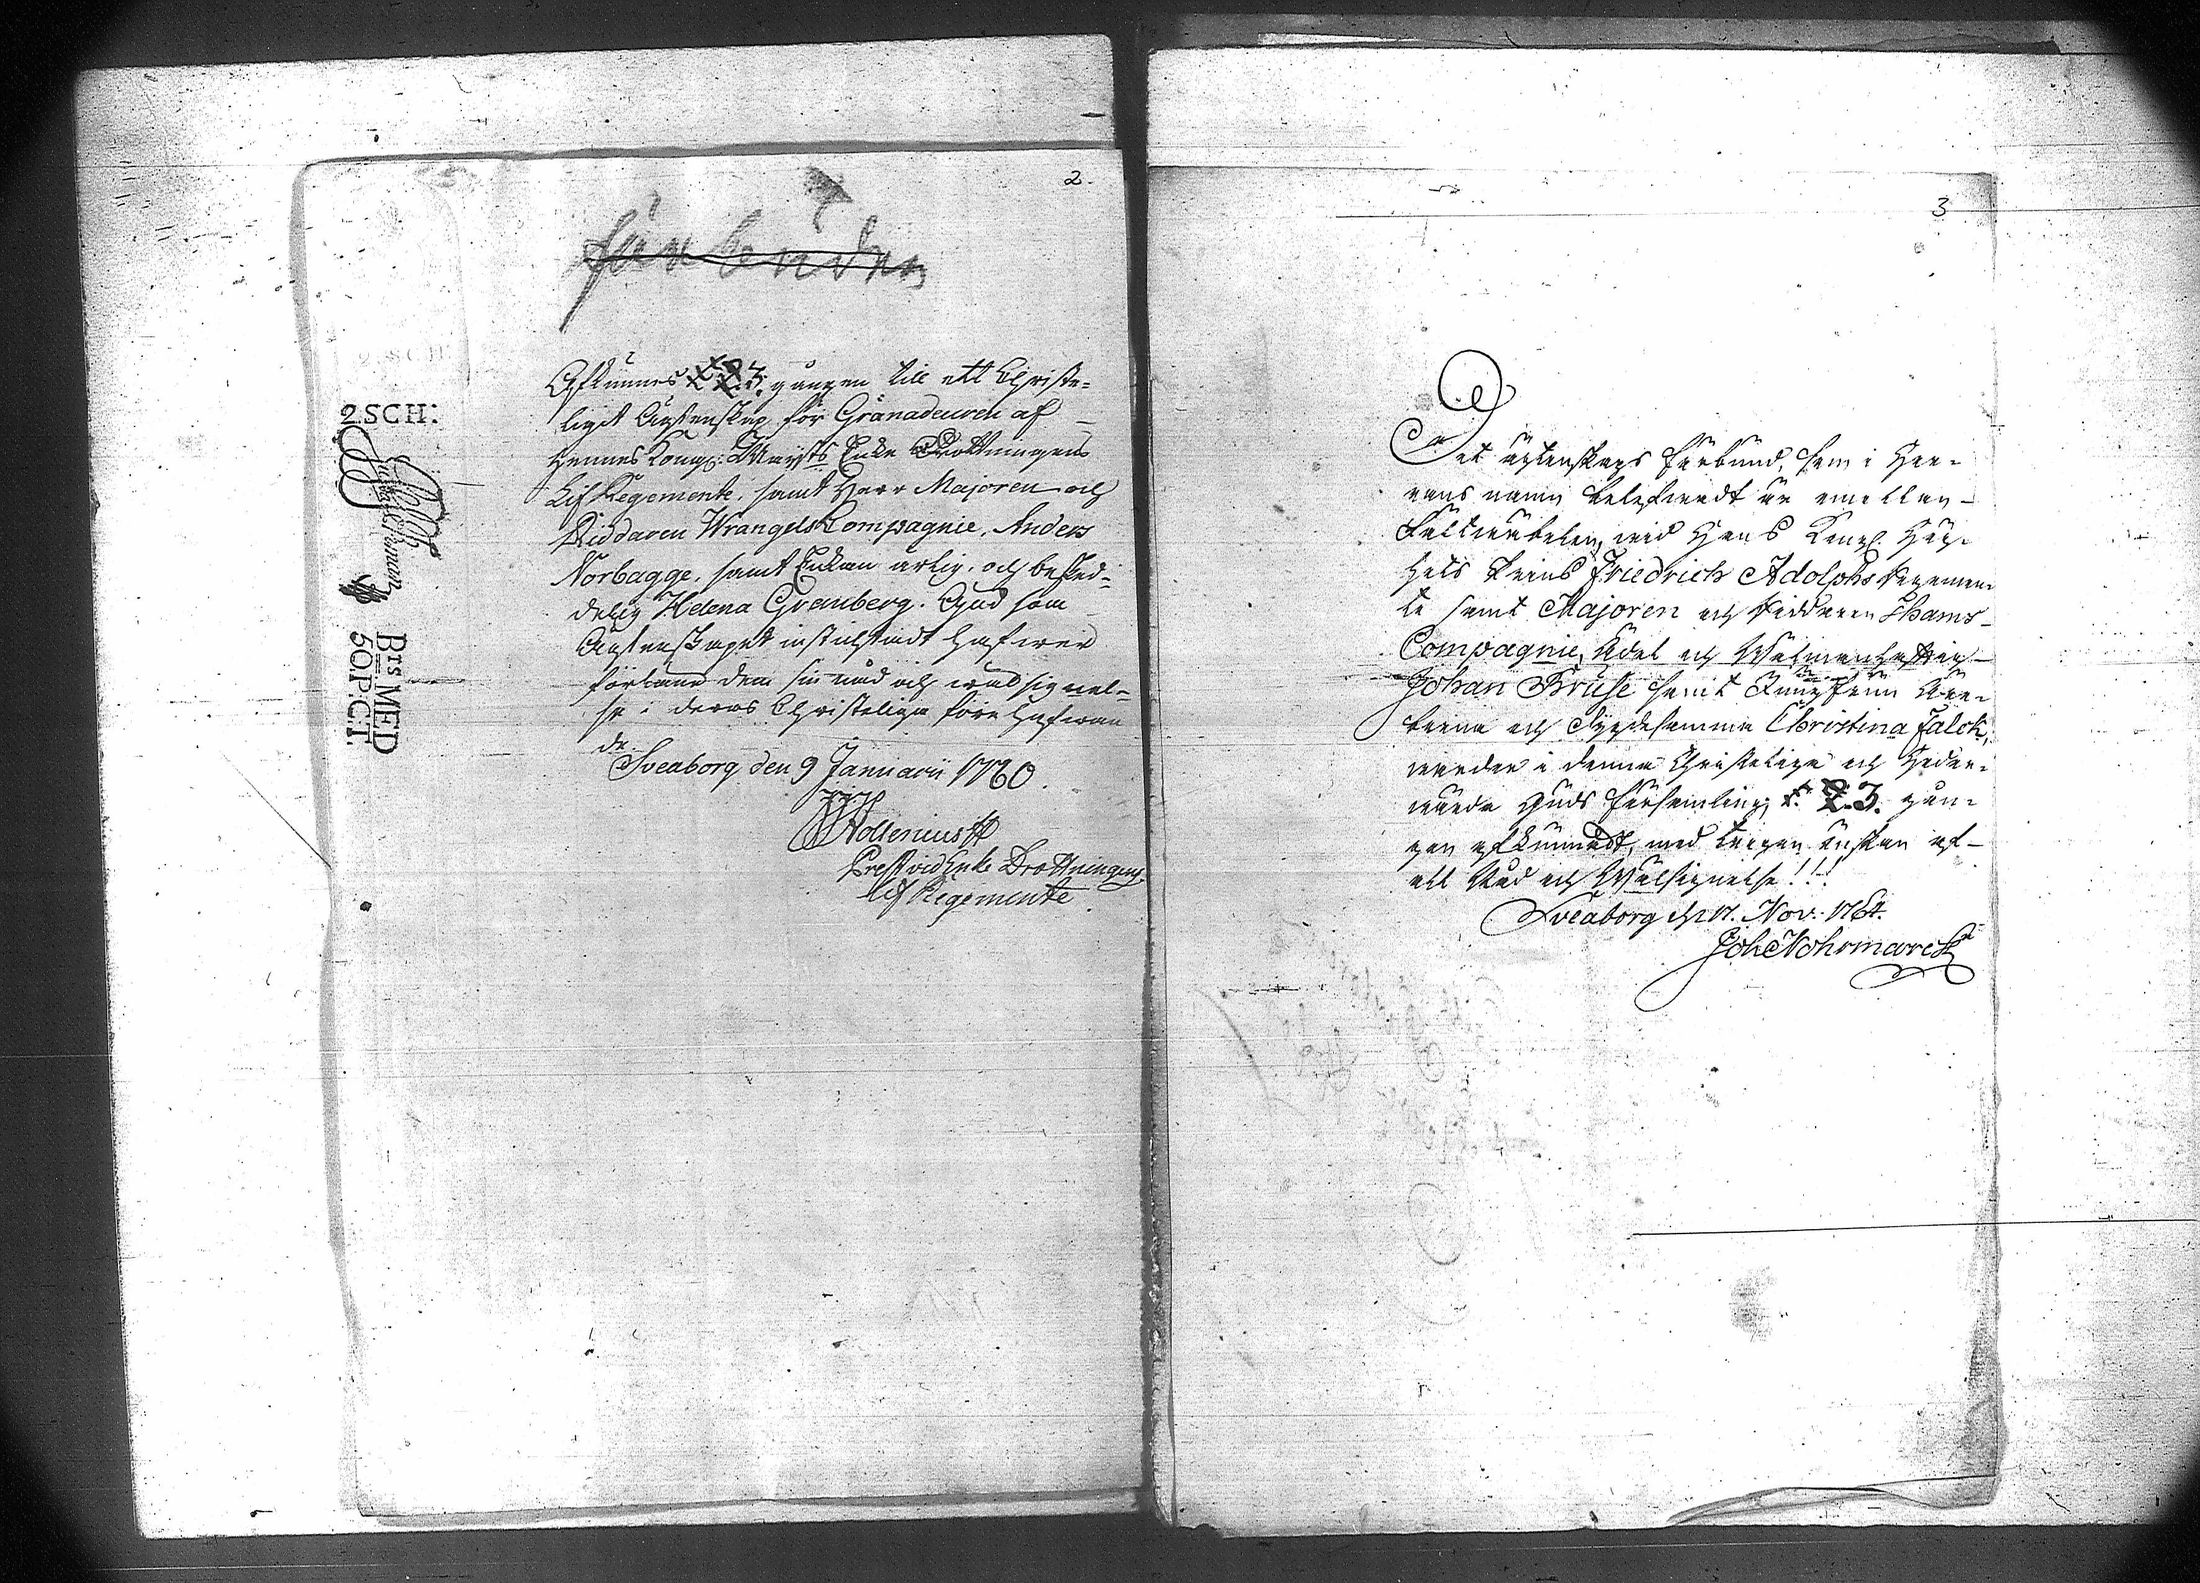 2.
förbuden
2.SCH:
2.SCH:
Brs MED
50.P:C:T.
Aflünnes 1. 2. 3. gången till ett Christe=
ligit Ägtenskap för Granadeuren af
Hennes Kongl: Maÿsts Enke Drottningens
Lif Regemente, samt Herr Majoren och
Riddaren Wrangels Compagnie, Anders
Norbagge, samt Enkan ärlig och besked=
delig Helena Granberg. Gud som
Ägtenskapet instichtadt hafwer
förläne dem sin nåd och wälsignel=
se i deras Christeliga förehafwan
de.
Sveaborg den 9 Januarii 1760.
Prest vid Enke Drottningens
Lif Regemente
3
Det ägtenskaps förbund, som i Her=
rans namn belefwadt är emellan
Fältwäbelen wid Hans Kongl. Hög=
hets Prins Friedrich Adolphs Regemen=
te samt Majoren och Riddaren Thams
Compagnie, Ädel och Wälmanhaftig
Johan Bruse samt Jungfrun Ähre=
borna och Dygdesamma Christina Falck,
warder i denna Christeliga och Heder=
wärda Guds församling 1. 2. 3. gån=
gen afkunnadt, med trogen önskan af
all Nåd och Wälsignelse!!!
Sveaborg d. 17. Nov: 1764.
Joh Mohrmarck